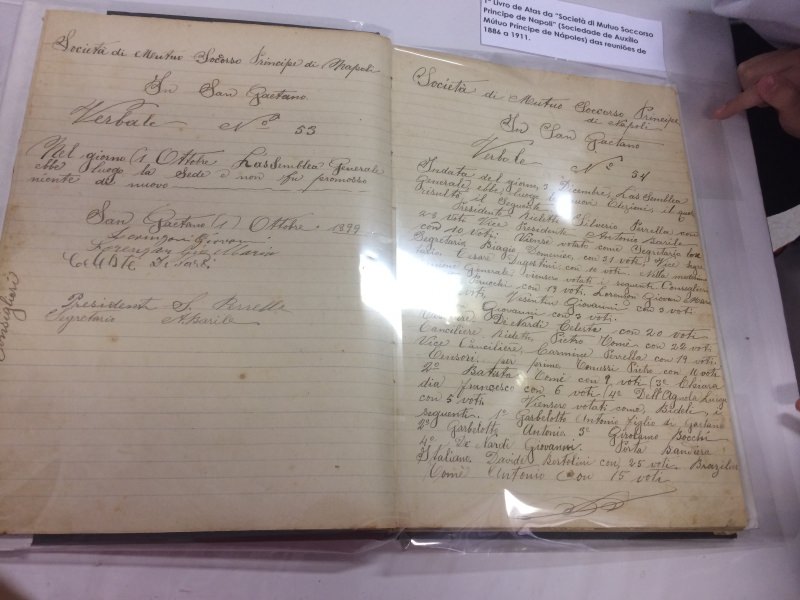 1º Livro de Atas da "Società di Mutuo Soccorso
Principe de Napoli" (Sociedade de Auxílio
Mútuo Príncipe de Nápoles) das reuniões de
1886 a 1911.
Società di Mutuo Socorso Principe di Napoli
In San Gaetano.
Verbale Nº 53
Nel giorno (1) Ottobre L'assemblea Generale
ebbe luogo la Sede e non fu promosso
niente di nuovo
San Gaetano (1) Ottobre 1899
Giovani
Celeste De
Consiglieri
Presidente S. Perrella
Segretario A. Barile
Società di Mutuo Soccorso Principe
di Napoli
In San Gaetano
Verbale Nº 54
del giorno, 3 Decembre, L'assemblea
Generale ebbe luogo le nuovi Elezioni, il quale
risultò il Seguente
Presidente Rieletto Silverio Perrella con
48 voti Vice Presidente Antonio Barile
con 10 voti. Viense votati come Segretario
Biagio Domenico, con 31 voti, Vice Segre
tario, Cesare con 11 voti. Nella medema
Generale, viensero votati i seguenti Consiglieri
con 19 voti. Lorenzon Giovan Maria
voti, Visentin Giovanni con 3 voti.
Giovanni con 3 voti.
De Nardi Celeste con 20 voti.
Canciliere Rieletto, Pietro Tomè con 22 voti
Vice Canciliere, Carmine Perrella con 19 voti.
Censori, per primo Pietro con 11 voti
2º Batista Tomè con 9 voti (3º Chiara
dia Francesco con 6 voti (4º Dell'Agnolo Luigi
con 5 voti Viensero votati come Bideli, i
seguenti. 1º Garbelotto Antonio figlio di Gaetano
2º Garbelotto Antonio 3º Girolamo Bocchi
4º De Nardi Giovanni. Porta Bandiera
Italiana Davide Bortolini con, 25 voti. Brazilera
Tomè Antonio con 15 voti